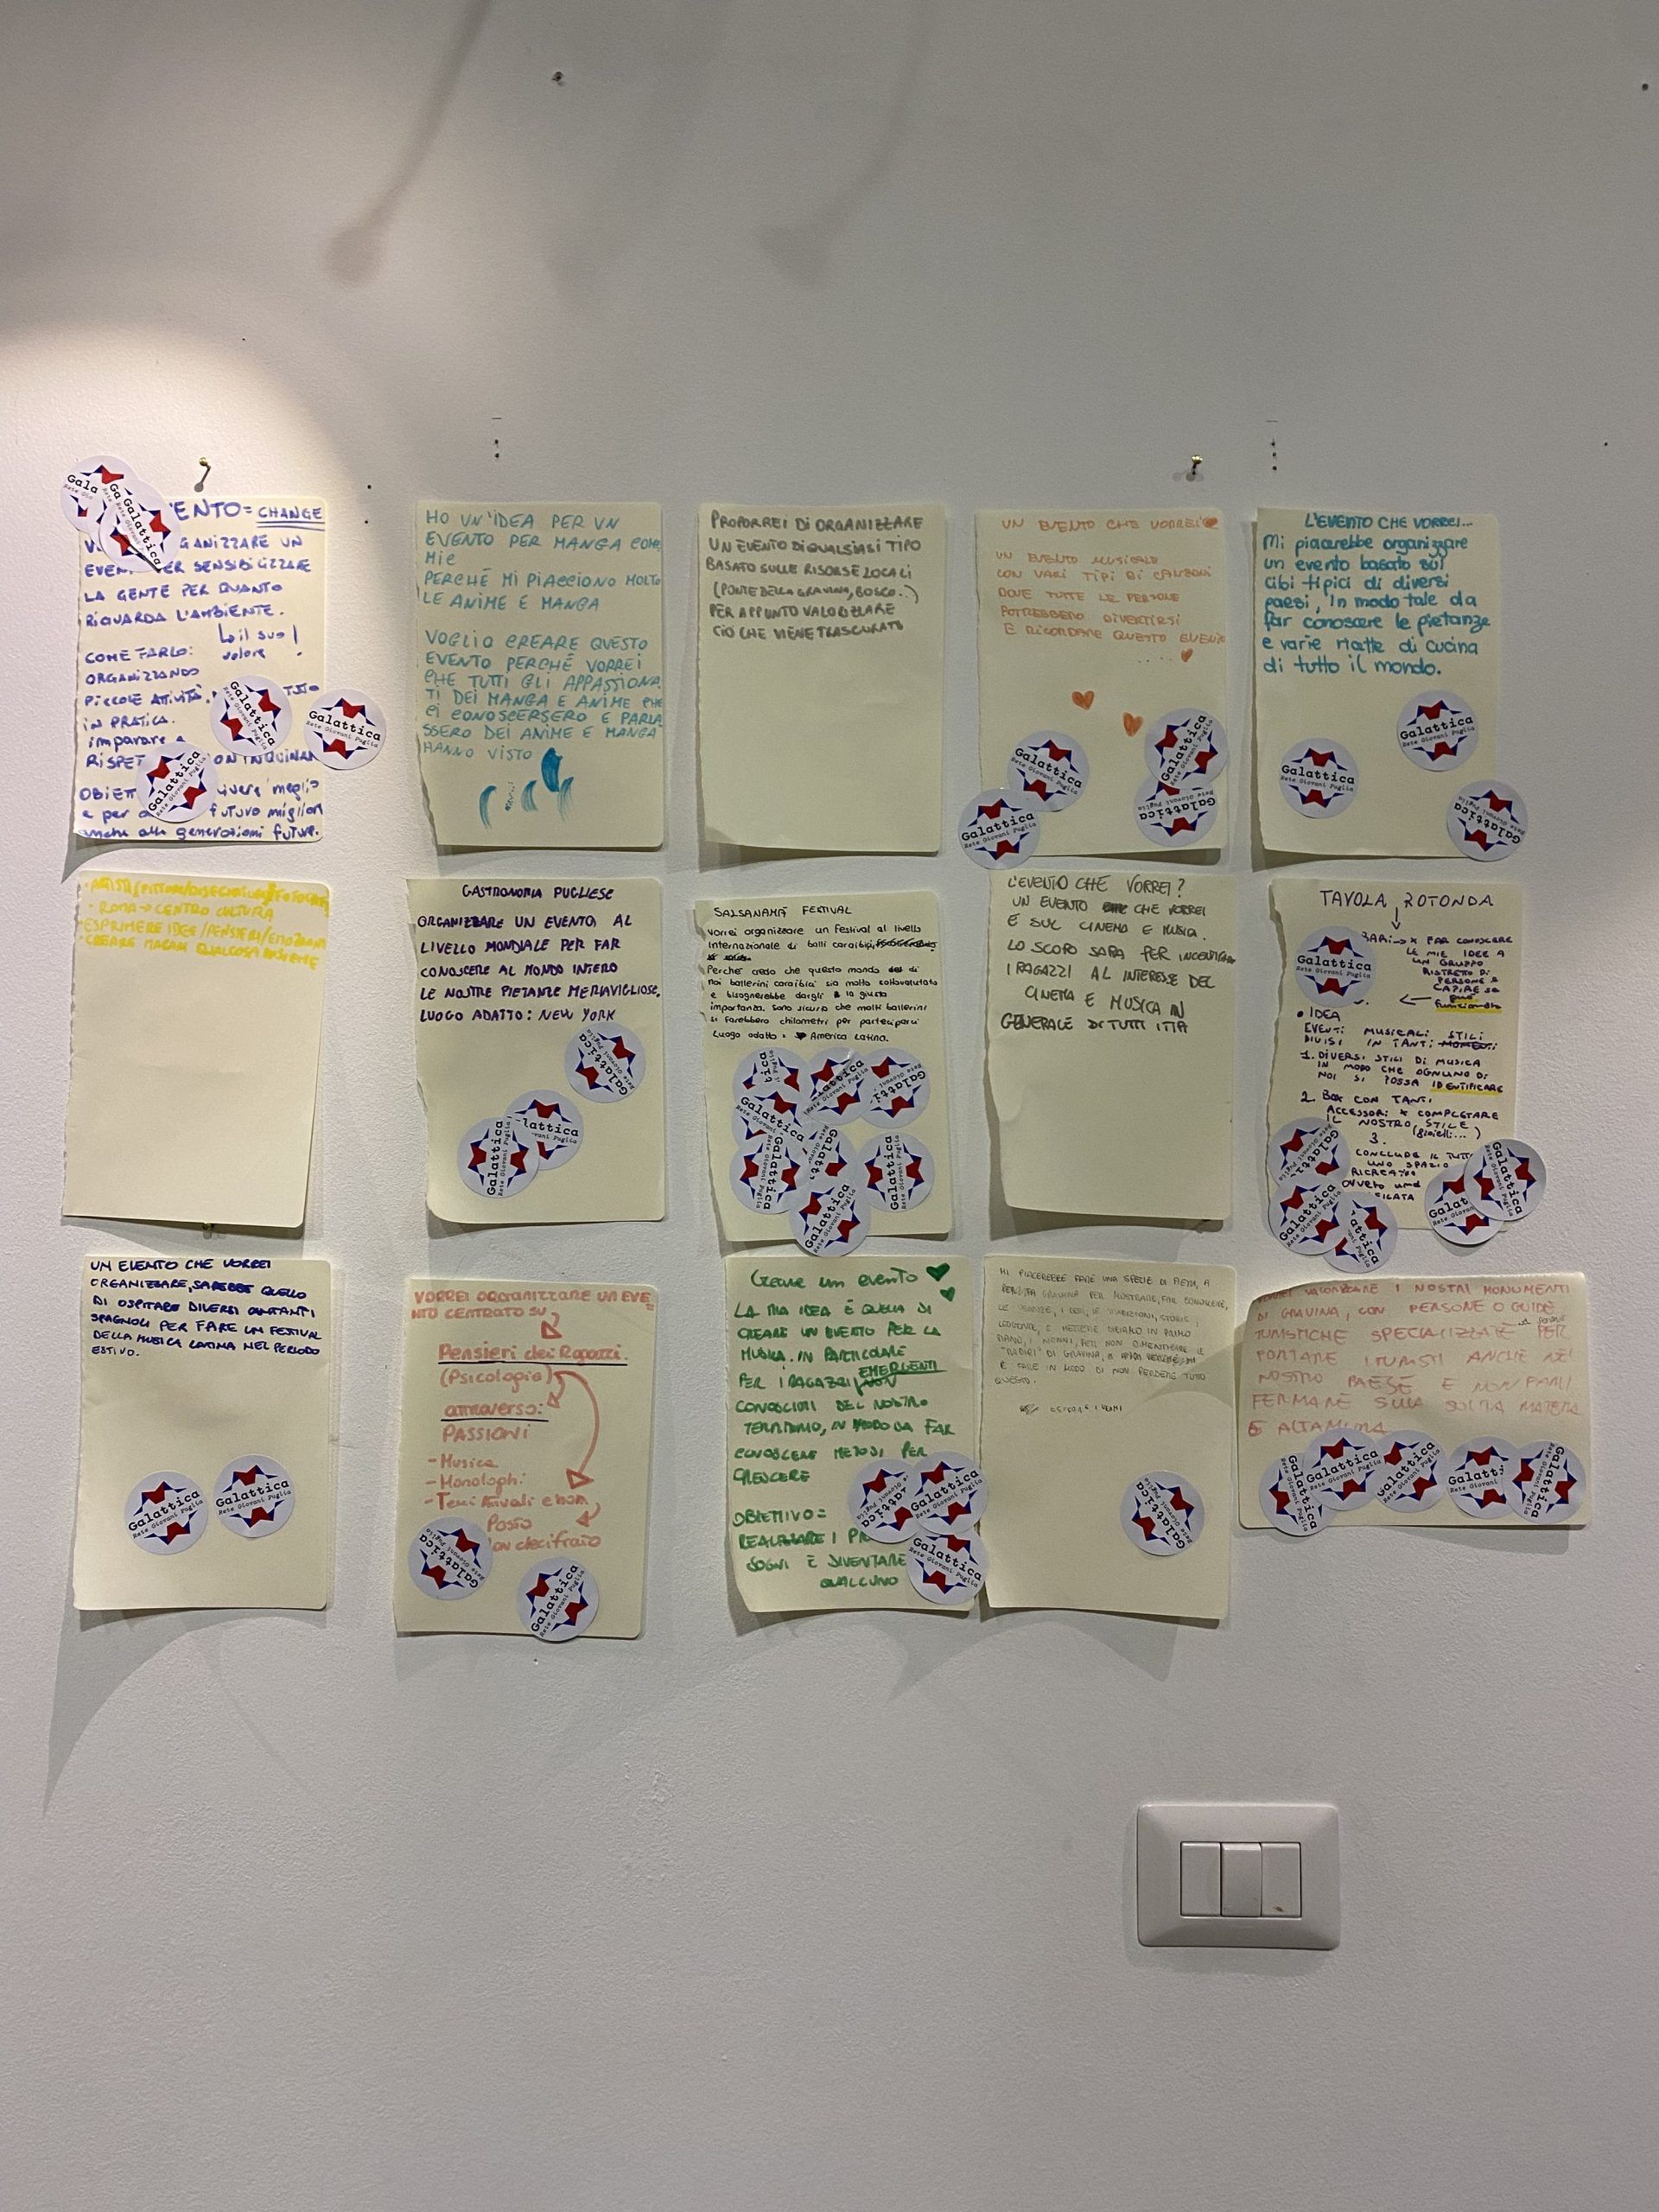 ENTO = CHANGE
GANIZZARE UN
EVEN ER SENSIBILIZZARE
LA GENTE PER QUANTO
RIGUARDA L'AMBIENTE.
il suo
valore !
COME FARLO:
ORGANIZZANDO
PICCOLE ATTIVITÀ.
IN PRATICA.
imparare a
RISPET ON INQUINAR
OBIETT vivere meglio
e per futuro migliore
anche alle generazioni future.
HO UN'IDEA PER UN
EVENTO PER MANGA COME
ME
PERCHÉ MI PIACCIONO MOLTO
LE ANIME E MANGA
VOGLIO CREARE QUESTO
EVENTO PERCHÉ VORREI
CHE TUTTI GLI APPASSIONA
TI DEI MANGA E ANIME CHE
CI CONOSCERSERO E PARLA
SSERO DEI ANIME E MANGA
HANNO VISTO
PROPORREI DI ORGANIZZARE
UN EVENTO DI QUALSIASI TIPO
BASATO SULLE RISORSE LOCALI
(PONTE DELLA GRAVINA, BOSCO..)
PER APPUNTO VALORIZZARE
CIÒ CHE VIENE TRASCURATO
UN EVENTO CHE VORREI
UN EVENTO MUSICALE
CON VARI TIPI DI CANZONI
DOVE TUTTE LE PERSONE
POTREBBERO DIVERTIRSI
E RICORDARE QUESTO EVENTO
.....
L'EVENTO CHE VORREI...
Mi piacerebbe organizzare
un evento basato sui
cibi tipici di diversi
paesi, in modo tale da
far conoscere le pietanze
e varie ricette di cucina
di tutto il mondo.
- ARTISTI (PITTORI/DISEGNATORI/FOTOGRAFI)
- ROMA → CENTRO CULTURA
- ESPRIMERE IDEE/PENSIERI/EMOZIONI
- CREARE MAGARI QUALCOSA INSIEME
GASTRONOMIA PUGLIESE
ORGANIZZARE UN EVENTO AL
LIVELLO MONDIALE PER FAR
CONOSCERE AL MONDO INTERO
LE NOSTRE PIETANZE MERAVIGLIOSE.
LUOGO ADATTO: NEW YORK
SALSANAMÁ FESTIVAL
Vorrei organizzare un festival al livello
Internazionale di balli caraibici
Perché credo che questo mondo di
noi ballerini caraibici sia molto sottovalutato
e bisognerebbe dargli la giusta
importanza. Sono sicuro che molti ballerini
si farebbero chilometri per parteciparci
Luogo adatto: America Latina.
L'EVENTO CHE VORREI?
UN EVENTO CHE VORREI
È SUL CINEMA E MUSICA.
LO SCOPO SARÀ PER INCENTIVARE
I RAGAZZI AL INTERESSE DEL
CINEMA E MUSICA IN
GENERALE DI TUTTI I TIPI
TAVOLA ROTONDA
BARI → X FAR CONOSCERE
LE MIE IDEE A
UN GRUPPO
RISTRETO DI
PERSONE E
CAPIRE SE
può
funzionare
• IDEA
EVENTI MUSICALI STILI
DIVISI IN TANTI MOMENTI:
1. DIVERSI STILI DI MUSICA
IN MODO CHE OGNUNO DI
NOI SI POSSA IDENTIFICARE
2. BOX CON TANTI
ACCESSORI X COMPLETARE
IL NOSTRO STILE
(gioielli...)
3.
CONCLUDE IL TUTTO
UNO SPAZIO
RICREATIVO
OVVERO UNA
FILATA
UN EVENTO CHE VORREI
ORGANIZZARE, SAREBBE QUELLO
DI OSPITARE DIVERSI CANTANTI
SPAGNOLI PER FARE UN FESTIVAL
DELLA MUSICA LATINA NEL PERIODO
ESTIVO.
VORREI ORGANIZZARE UN EVE
NTO CENTRATO SU
Pensieri dei Ragazzi.
(Psicologia)
attraverso:
PASSIONI
- Musica
- Monologhi
- Temi Attuali e non
Posso
decifrarlo
Creare un evento
LA MIA IDEA È QUELLA DI
CREARE UN EVENTO PER LA
MUSICA. IN PARTICOLARE
EMERGENTI
PER I RAGAZZI NON
CONOSCIUTI DEL NOSTRO
TERRITORIO, IN MODO DA FAR
CONOSCERE METODI PER
CRESCERE
OBIETTIVO =
REALIZZARE I PR
SOGNI E DIVENTARE
QUALCUNO
MI PIACEREBBE FARE UNA SPECIE DI FIERA, A
GRAVINA PER MOSTRARE, FAR CONOSCERE,
LE USANZE, I CIBI, LE TRADIZIONI, STORIE,
LEGGENDE, E METTERE IN PRIMO
PIANO, I NONNI, PER NON DIMENTICARE LE
"RADICI" DI GRAVINA,
E FARE IN MODO DI NON PERDERE TUTTO
QUESTO.
VORREI VALORIZZARE I NOSTRI MONUMENTI
DI GRAVINA, CON PERSONE O GUIDE
TURISTICHE SPECIALIZZATE PER
PORTARE I TURISTI ANCHE NEL
NOSTRO PAESE E NON FARLI
FERMARE SULLA SOLITA MATERA
E ALTAMURA
Galattica
Rete Giovani Puglia